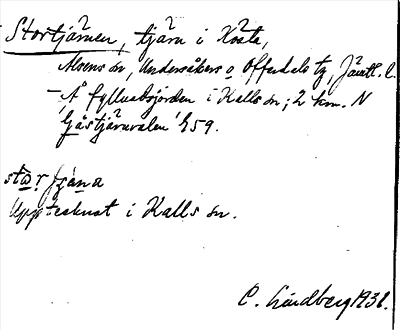 Stortjärnen, tjärn i Kösta,
Alsens sn, Undersåkers o Offerdals tg, Jämtl. l.
- Å fyllnadsjorden i Kalls sn; 2 km. N
Gåstjärnvalen 659.
Upptecknat i Kalls sn.
C. Lindberg 1931.